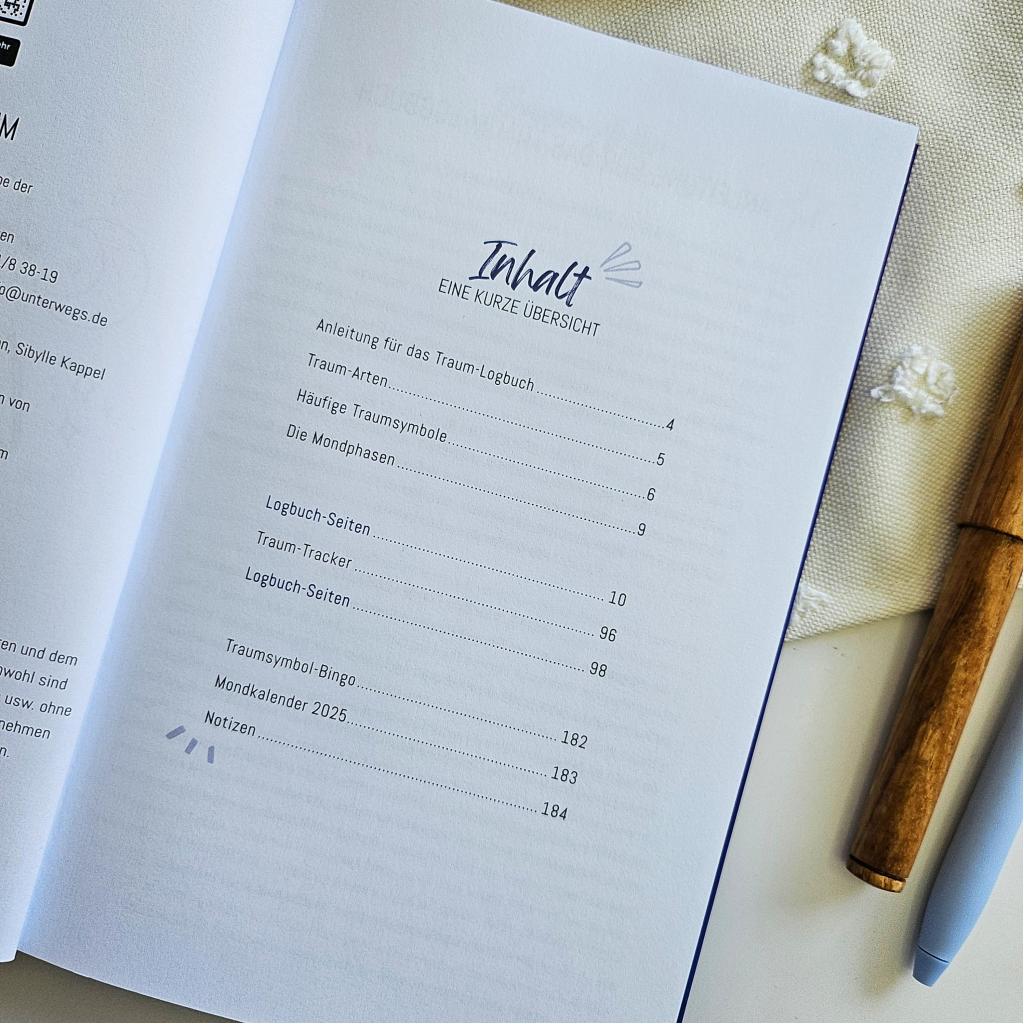 ehr
M
be der
en
1/8 38-19
o@unterwegs.de
n, Sibylle Kappel
n von
m
en und dem
wohl sind
usw. ohne
nehmen
n.
Inhalt
EINE KURZE ÜBERSICHT
Anleitung für das Traum-Logbuch 4
Traum-Arten 5
Häufige Traumsymbole 6
Die Mondphasen 9
Logbuch-Seiten 10
Traum-Tracker 96
Logbuch-Seiten 98
Traumsymbol-Bingo 182
Mondkalender 2025 183
Notizen 184